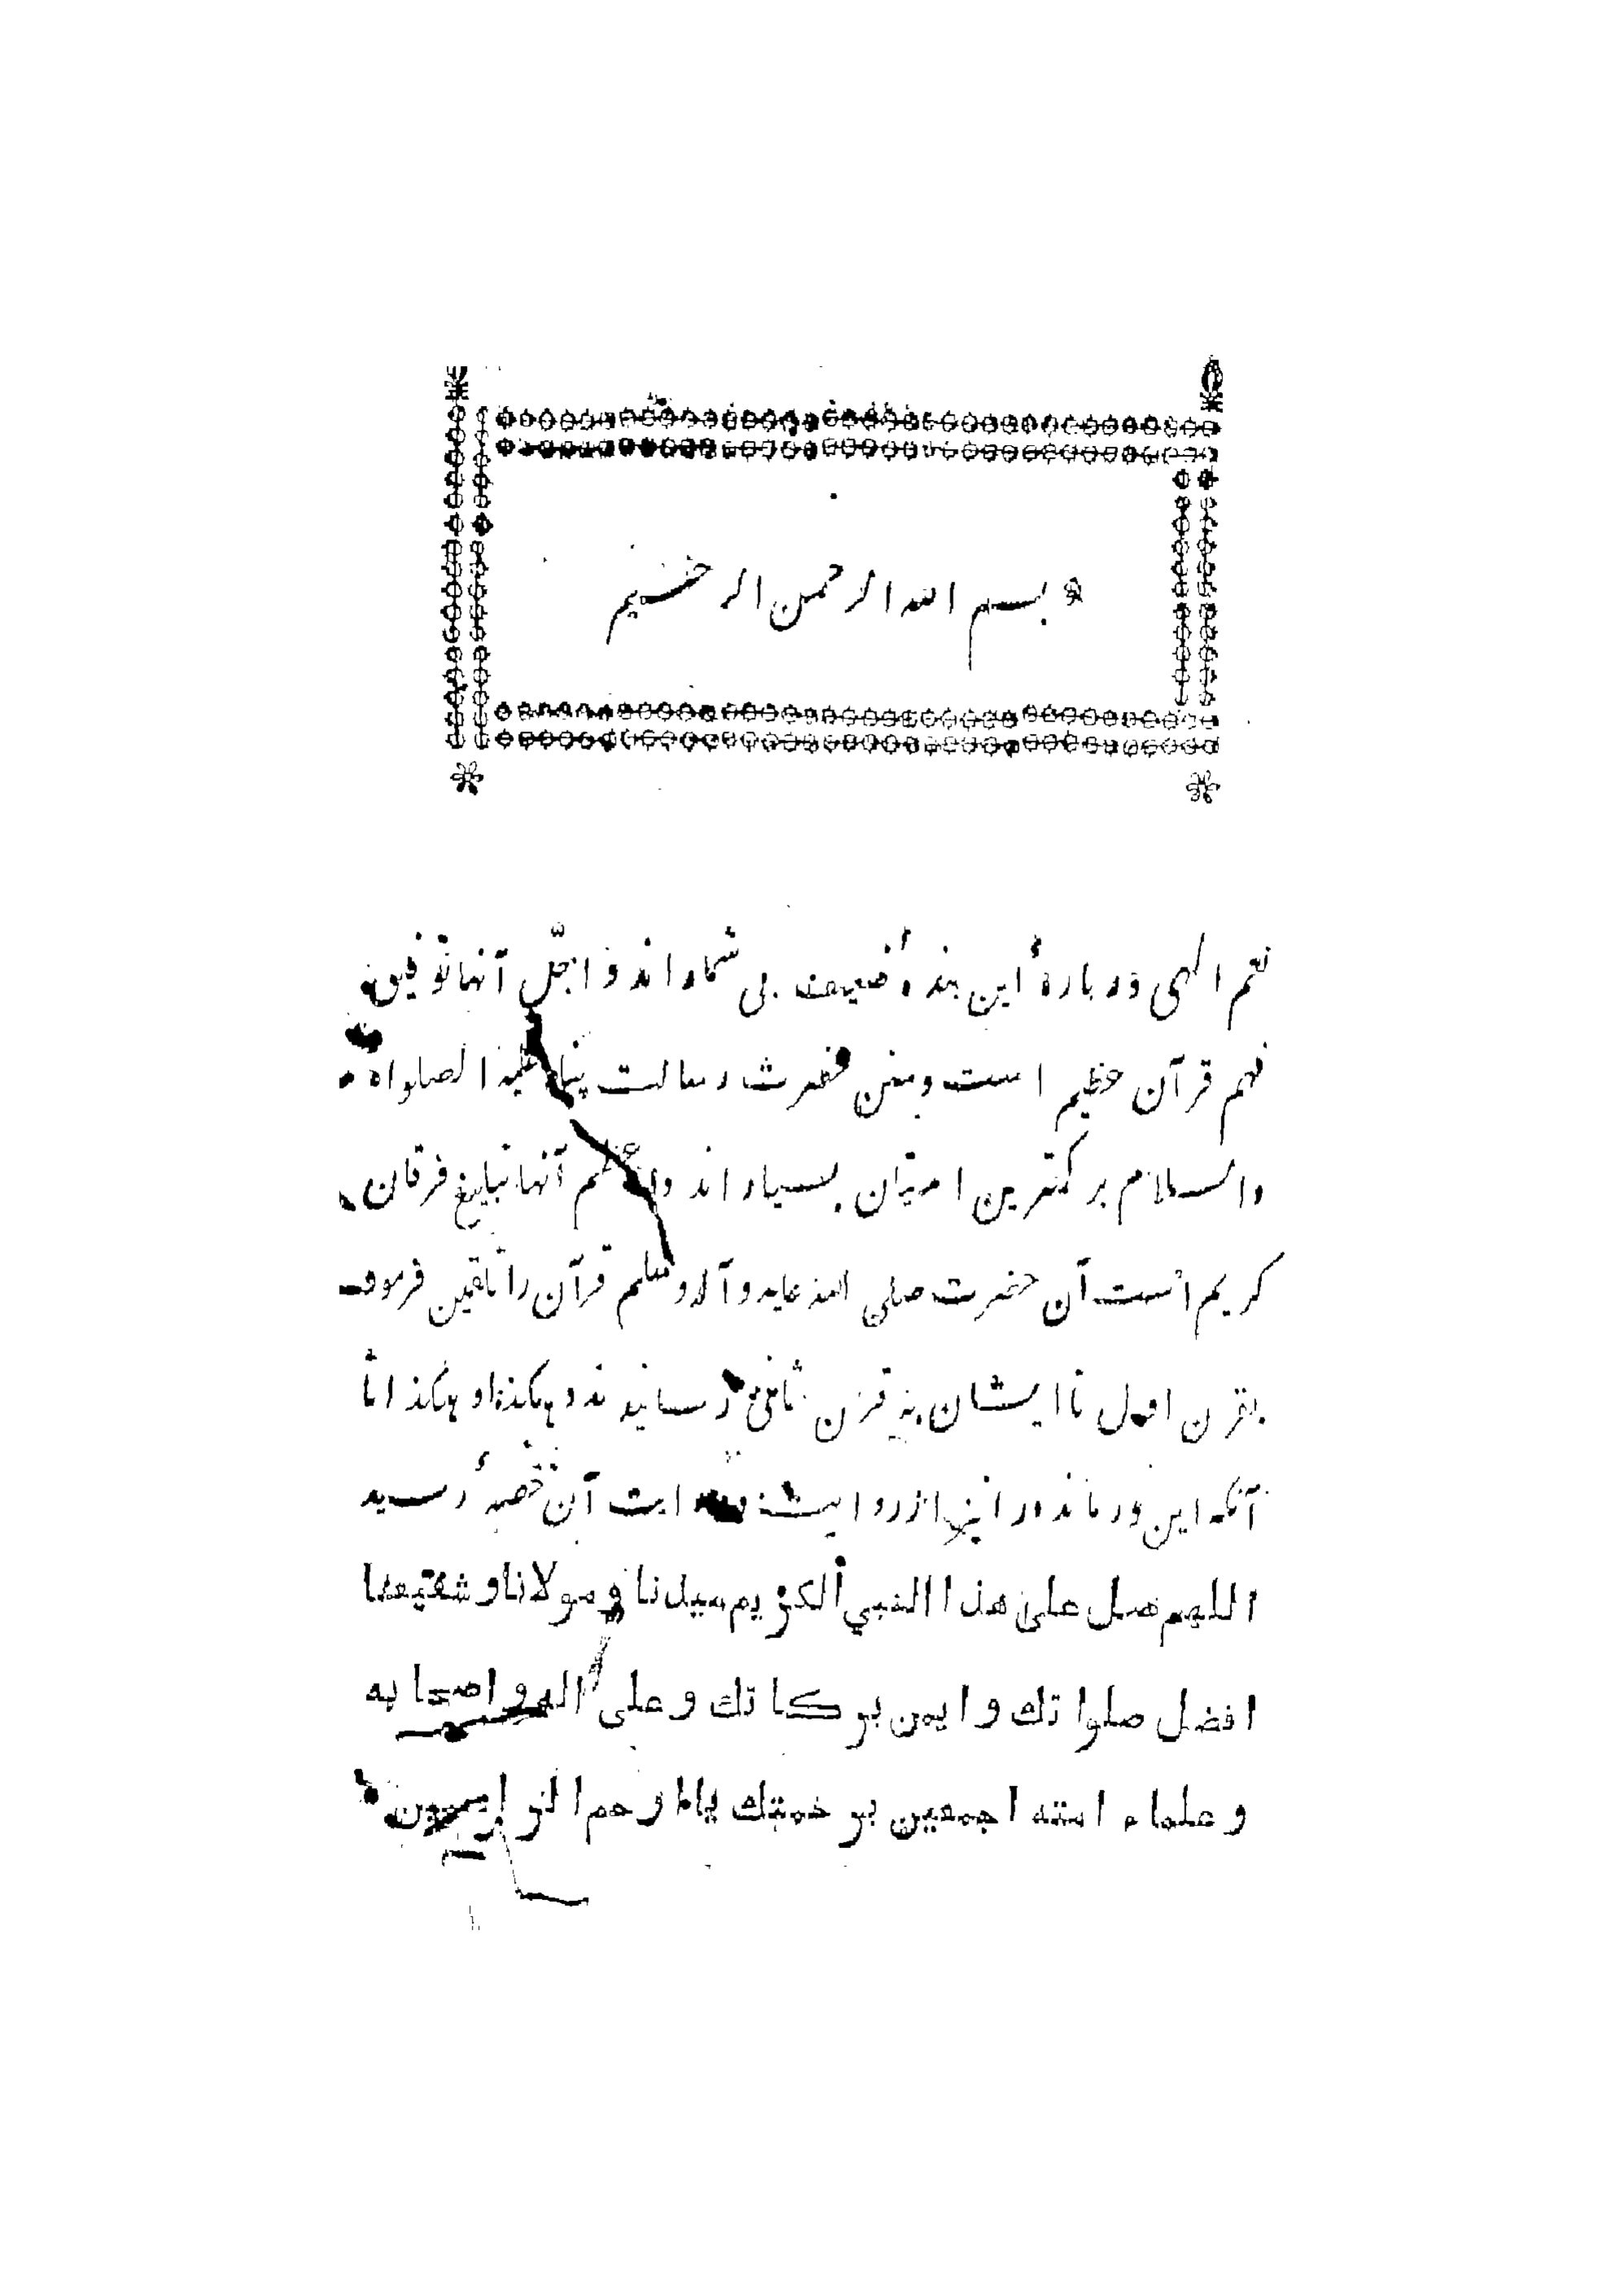 بسم الله الرحمن الرحیم
نعم الهی در بارهٔ این بندهٔ ضعیف بی شمار اند و اجلّ آنها توفیق
فهم قرآن عظیم است و منن حضرت رسالت پناه علیه الصلواة
والسلام بر کمترین امتیان بسیار اند و اعظم آنها تبلیغ فرقان
کریم است آن حضرت صلی الله علیه و آله و سلم قرآن را تلقین فرمود
بقرن اول تا ایشان به قرن ثانی رسانیدند و هکذا و هکذا تا
آنکه این در مانده را نیز از روایت و درایت آن حصهٔ رسید
اللهم صل على هذا النبي الكريم سيدنا و مولانا و شفيعنا
افضل صلواتك و ايمن بركاتك و على اله و اصحابه
و علماء امته اجمعين برحمتك يا ارحم الراحمين